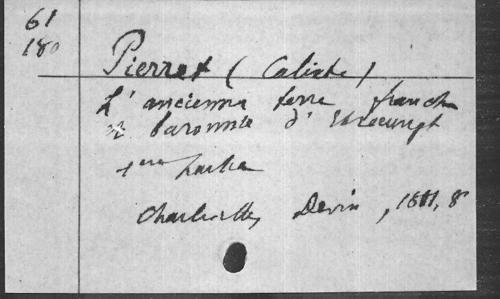 61
180
Pierret (Calixte)
L'ancienne terre franche
et baronnie d'Estrecungt
1ère partie
Charleville, Devin, 1881, 8°